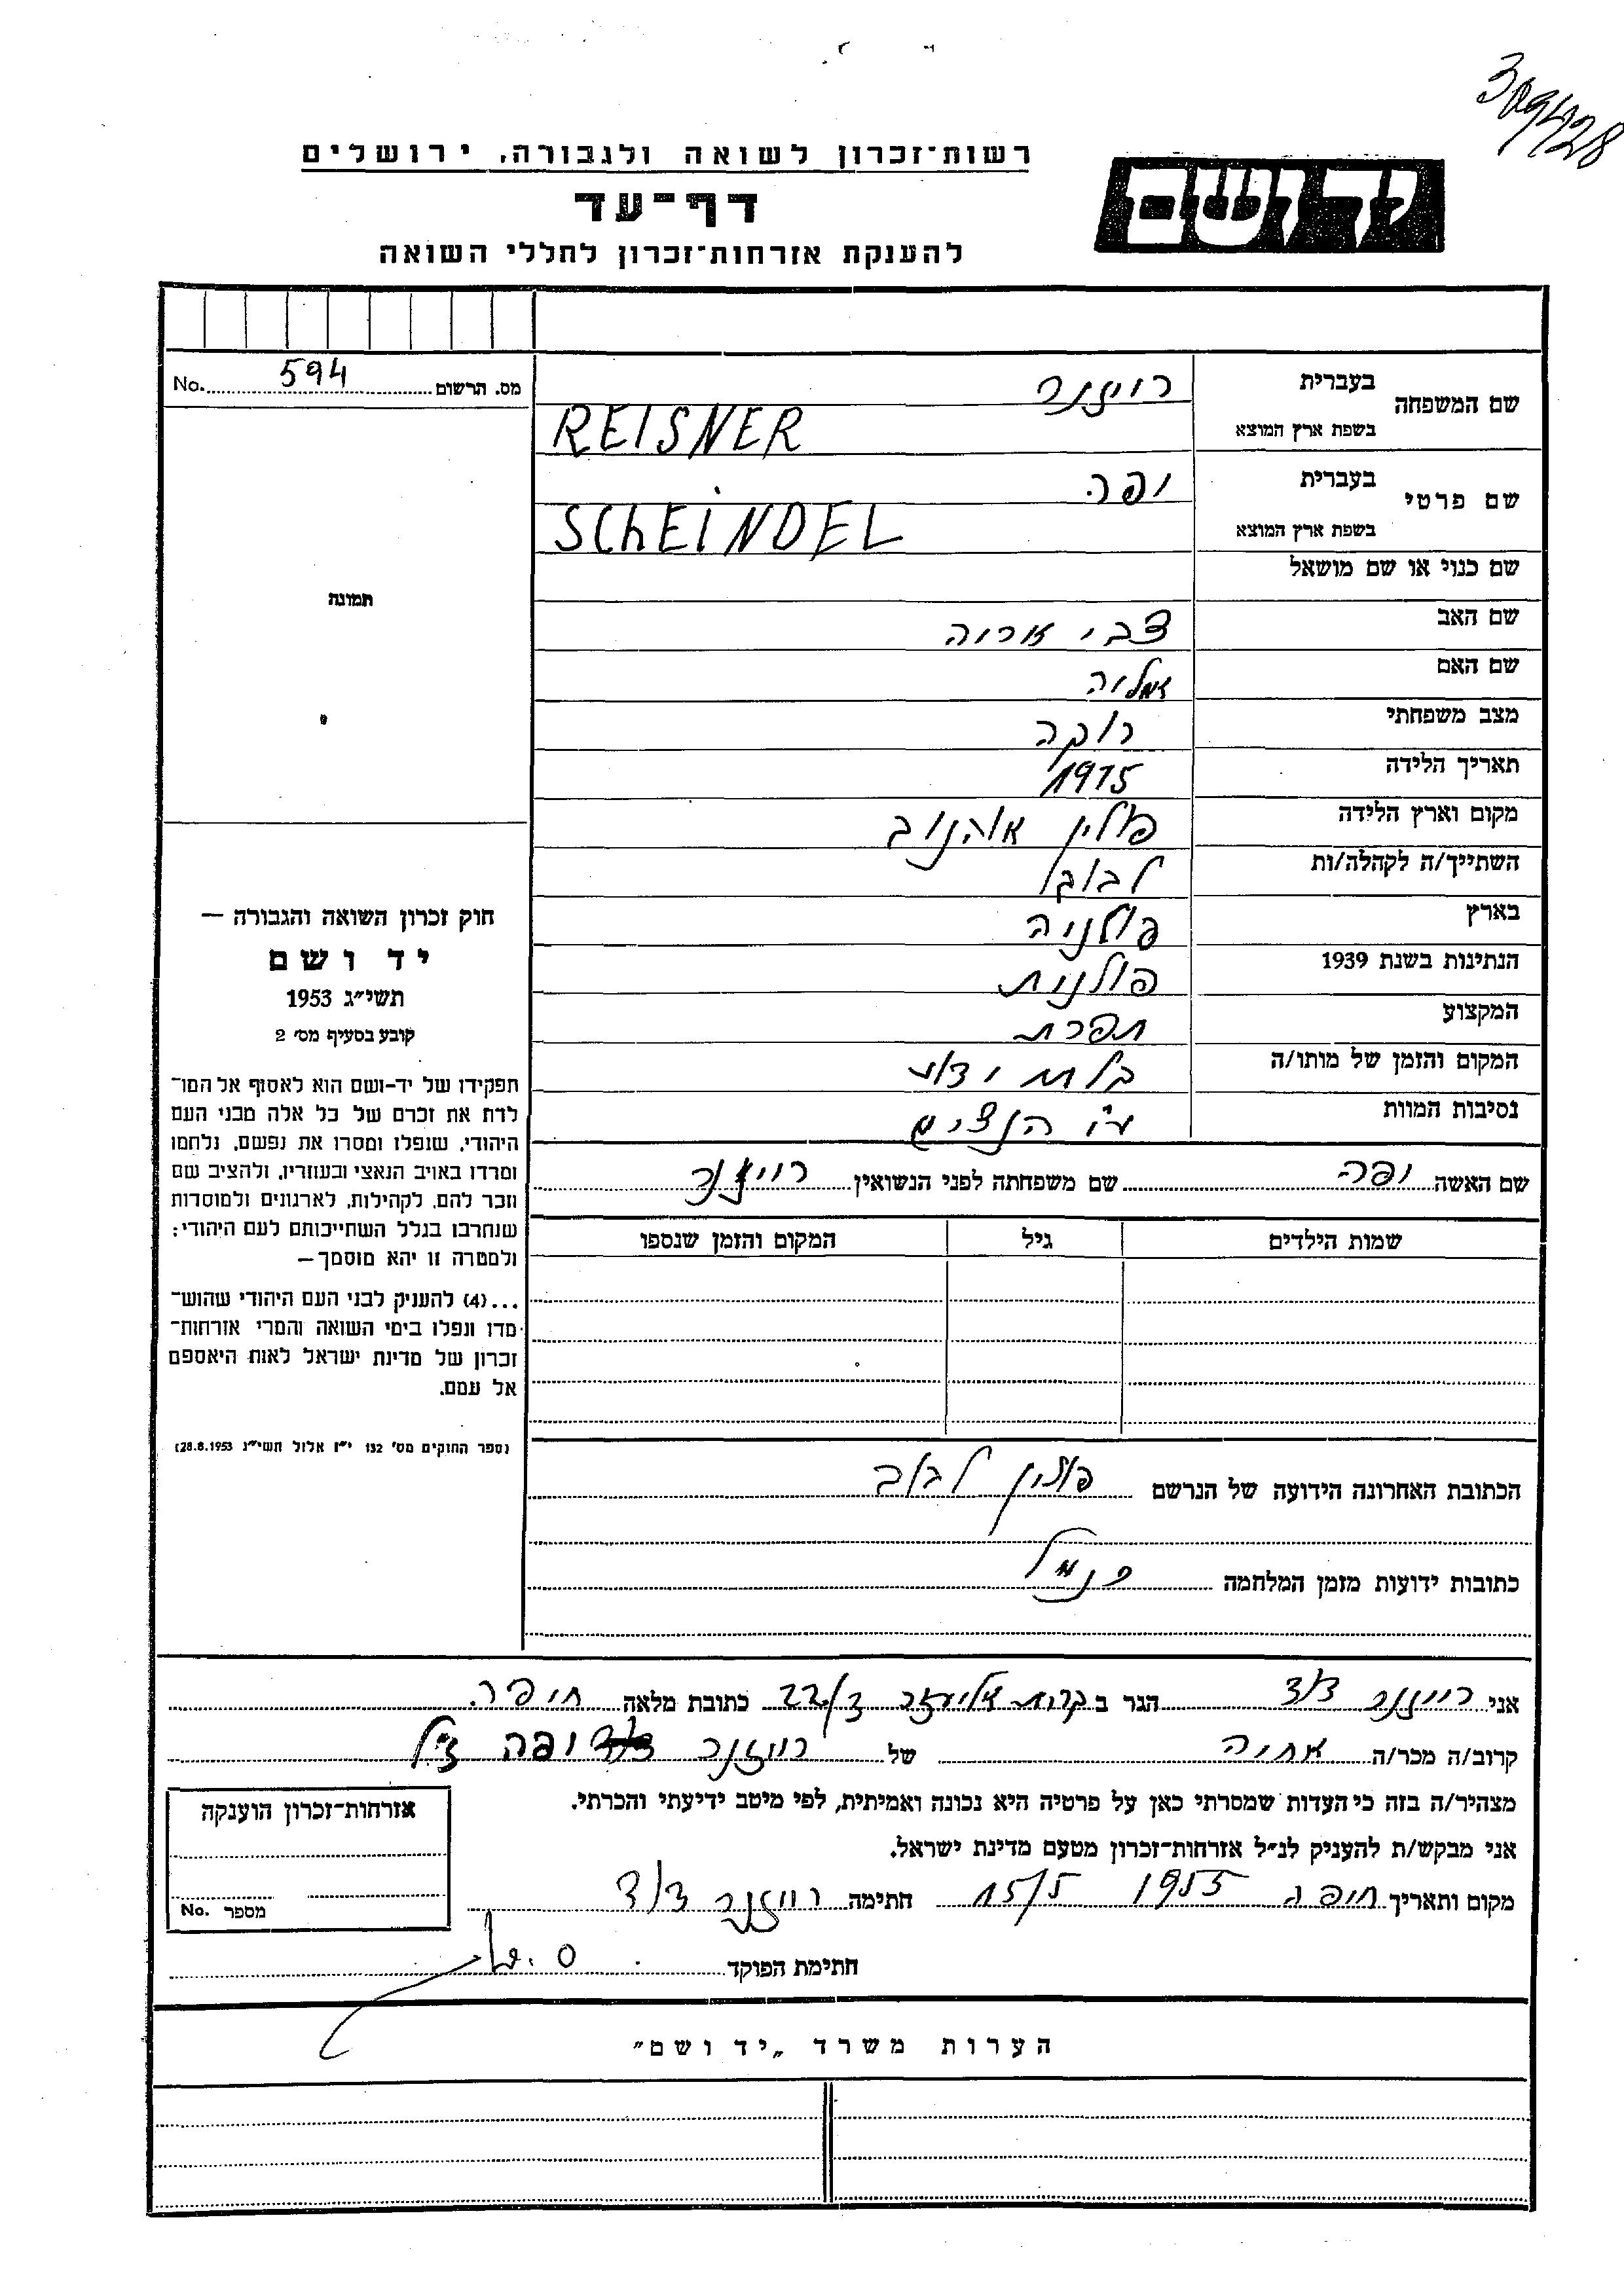 309428
רשות־זכרון לשואה ולגבורה, ירושלים
ידושם
דף־עד
להענקת אזרחות־זכרון לחללי השואה
מס. הרשום 594 No.
שם המשפחה
בעברית רייזנר
בשפת ארץ המוצא REISNER
שם פרטי
בעברית יפה
בשפת ארץ המוצא SCHEINDEL
שם כנוי או שם מושאל
שם האב צבי אריה
שם האם עמליה
מצב משפחתי רוקה
תאריך הלידה 1915
מקום וארץ הלידה פולין
השתייך/ה לקהלה/ות לבוב
בארץ פולניה
הנתינות בשנת 1939 פולנית
המקצוע תפרת
המקום והזמן של מותו/ה בלתי ידוע
נסיבות המוות ע"י הנצים
שם האשה יפה שם משפחתה לפני הנשואין רייזנר
שמות הילדים גיל המקום והזמן שנספו
הכתובת האחרונה הידועה של הנרשם פולין לבוב
כתובות ידועות מזמן המלחמה כנ"ל
תמונה
חוק זכרון השואה והגבורה —
יד ושם
תשי״ג 1953
קובע בסעיף מס׳ 2
תפקידו של יד-ושם הוא לאסוף אל המו־
לדת את זכרם של כל אלה מבני העם
היהודי, שנפלו ומסרו את נפשם, נלחמו
ומרדו באויב הנאצי ובעוזריו, ולהציב שם
וזכר להם, לקהילות, לארגונים ולמוסדות
שנחרבו בגלל השתייכותם לעם היהודי;
ולמטרה זו יהא מוסמך—
...(4) להעניק לבני העם היהודי שהוש־
מדו ונפלו בימי השואה והמרי אזרחות־
זכרון של מדינת ישראל לאות היאספם
אל עמם.
(ספר החוקים מס׳ 132 י״ז אלול תשי״ג 28.8.1953)
אני רייזנר דוד הגר ב קרית אליעזר ד/22 כתובת מלאה חיפה
קרוב/ה מכר/ה אחיה של רייזנר יפה ז"ל
מצהיר/ה בזה כי העדות שמסרתי כאן על פרטיה היא נכונה ואמיתית, לפי מיטב ידיעתי והכרתי.
אני מבקש/ת להעניק לנ״ל אזרחות־זכרון מטעם מדינת ישראל.
מקום ותאריך חיפה 1955 15/5 חתימה רייזנר דוד
חתימת הפוקד
אזרחות־זכרון הוענקה
מספר No.
הערות משרד „יד ושם״